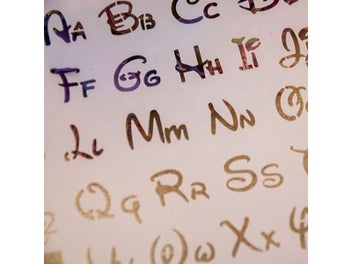 Aa Bb Cc
Ff Gg Hh Ii
Ll Mm Nn
Qq Rr Ss
Xx